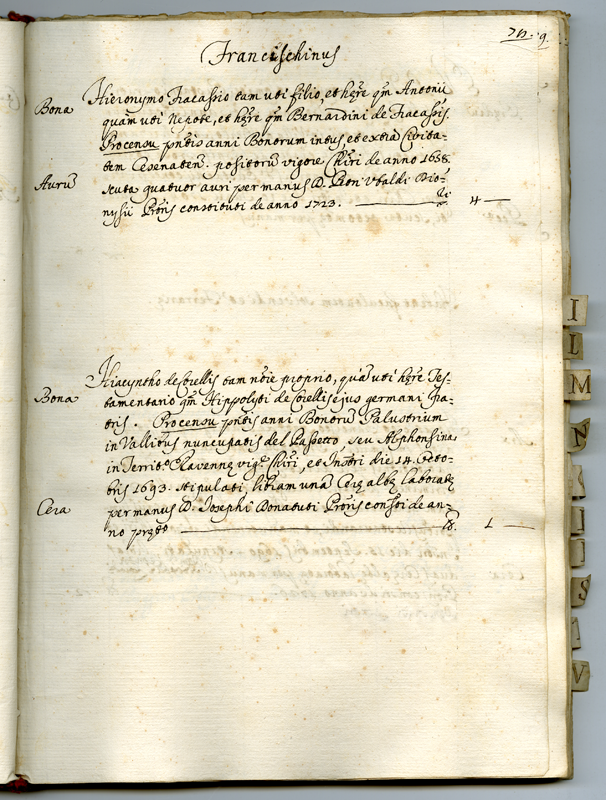 79. 9.
Francischinus
Bona Hieronymo Fracassio tam uti filio, et hęre qm Antonii
quam uti Nepote, et hęre qm Bernardini de Fracassis.
Procensu pntis anni Bonorum intus, et extra Civita-
tem Cesenaten. positoru vigore Chiri de anno 1658.
Auru scuta quatuor auri per manus D. Bon Vbaldi Dio-
nysii Proris constituti de anno 1723. 4
Bona Hiacyntho de Lorellis tam noie proprio, qua uti hęre Tes-
tamentario qm Hippolyti de Lorellis ejus germani fra-
tris. Procensu pntis anni Bonoru Palustrium
in Vallibus nuncupatis del Passetto, seu Alphonsina
in Territo Ravennę vigre Chiri, et Instri die 14. Octo-
bris 1693. stipulati libram una Cerę albę laboratę
Cera per manus D. Josephi Bonacuti Proris constti de an-
no pręto 1
I
L
M
N
S
V